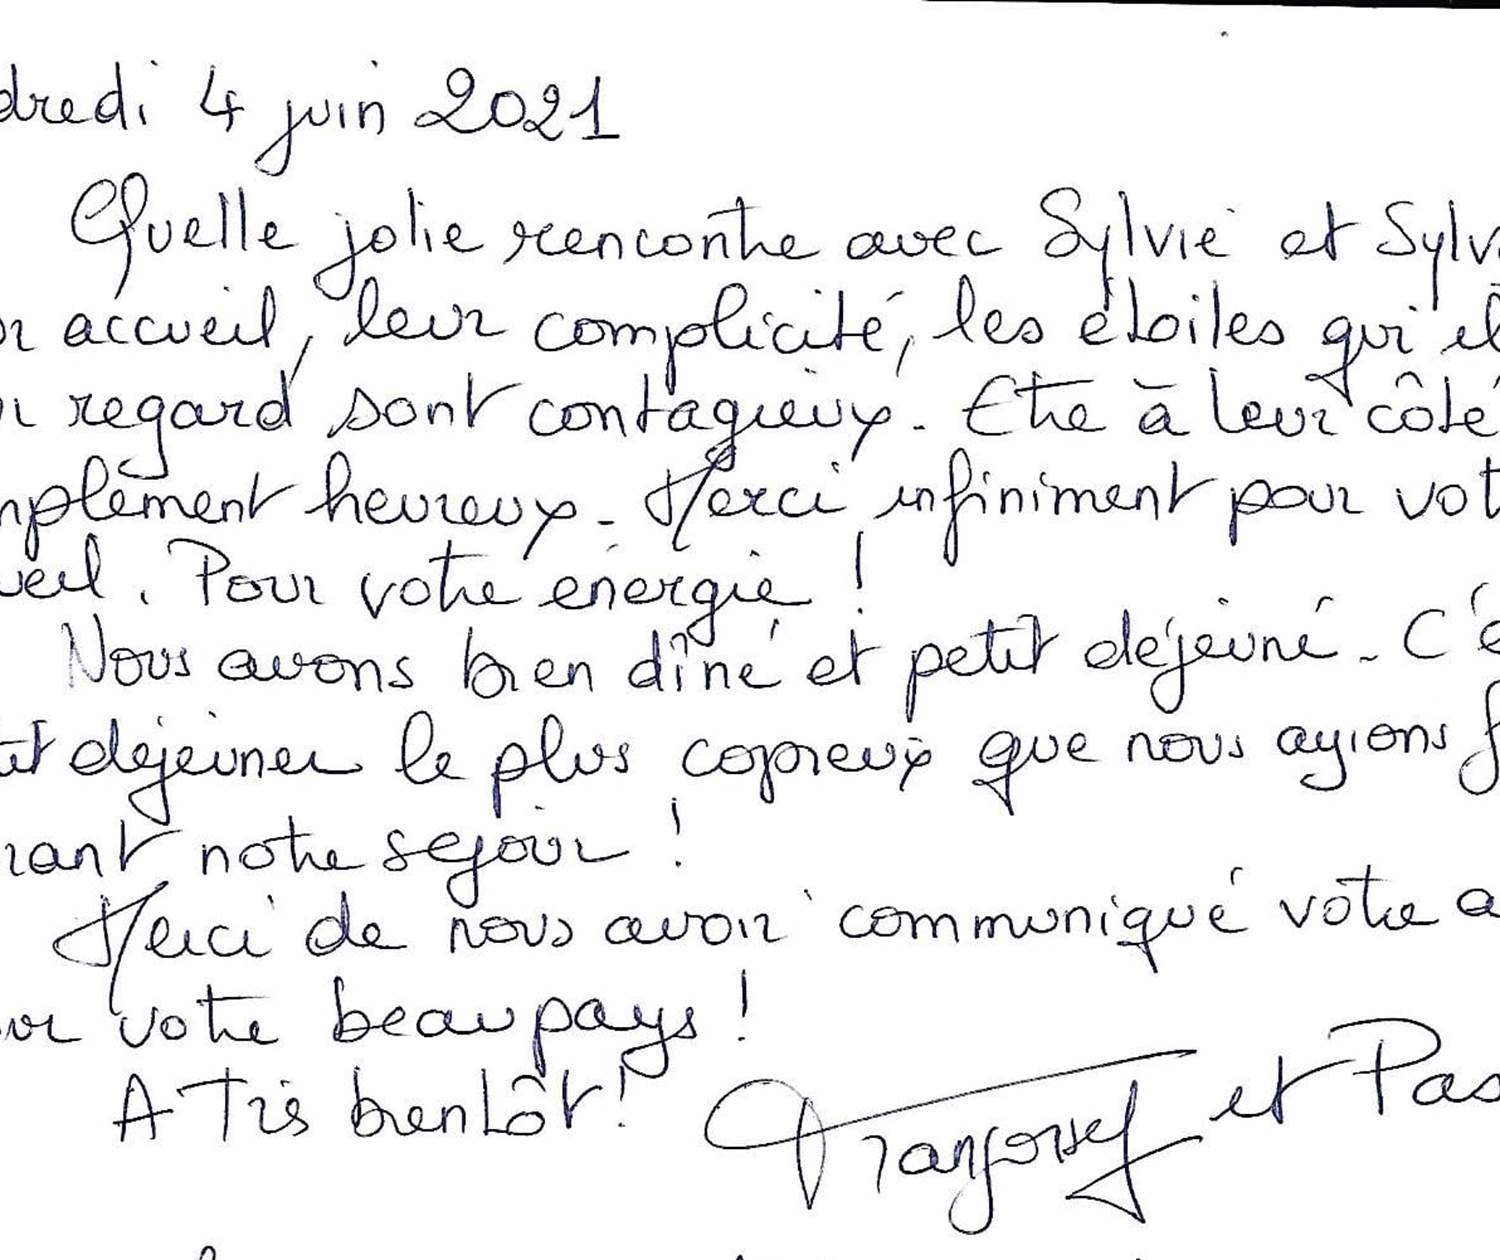 dredi 4 juin 2021
Quelle jolie rencontre avec Sylvie et Sylv
r accueil, leur complicité, les étoiles qui il
r regard sont contagieux. Etre à leur côté
mplèment heureux. Merci infiniment pour vot
ueil. Pour votre énergie !
Nous avons bien dîné et petit déjeuné. C'e
tit déjeuner le plus copieux que nous ayions f
rant notre séjour !
Merci de nous avoir communiqué votre a
ur votre beau pays !
A Très bientôt ! et Pas